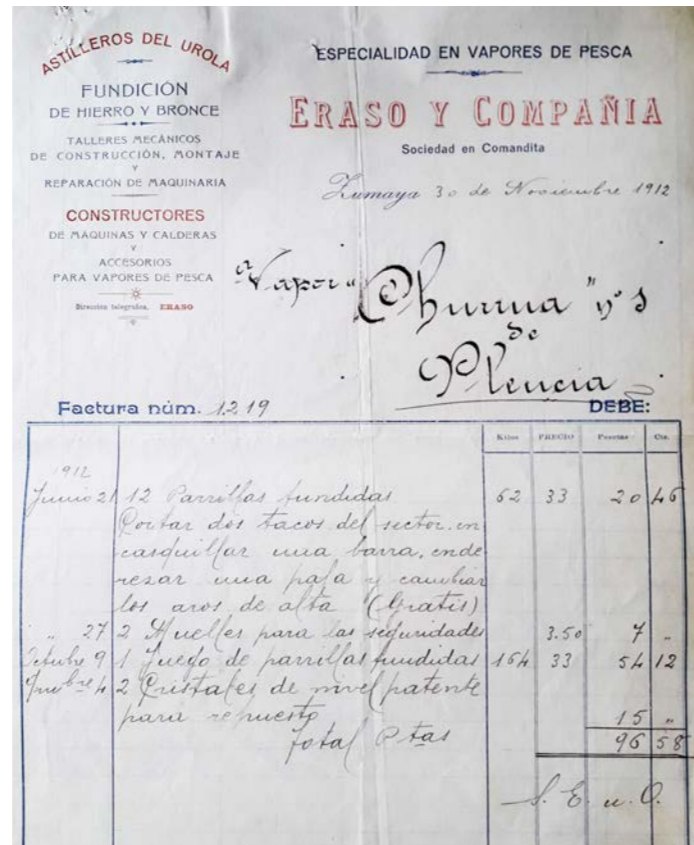 ASTILLEROS DEL UROLA
FUNDICIÓN
DE HIERRO Y BRONCE
TALLERES MECÁNICOS
DE CONSTRUCCIÓN, MONTAJE
Y
REPARACIÓN DE MAQUINARIA
CONSTRUCTORES
DE MÁQUINAS Y CALDERAS
Y
ACCESORIOS
PARA VAPORES DE PESCA
Dirección telegráfica. ERASO
ESPECIALIDAD EN VAPORES DE PESCA
ERASO Y COMPAÑIA
Sociedad en Comandita
Zumaya 30 de Noviembre 1912
Vapor "Churrua" nº 1
de
Plencia
Factura núm. 1219 DEBE:
Kilos PRECIO Pesetas Cts.
1912
Junio 21 12 Parrillas fundidas 62 33 20 46
Cortar dos tacos del sector. en
casquillar una barra, ende
rezar una pala y cambiar
los aros de alta (Gratis)
" 27 2 Muelles para las seguridades 3.50 7 "
Octubre 9 1 Juego de parrillas fundidas 164 33 54 12
4 2 Cristales de nivel patente
para repuesto 15 "
Total Ptas 96 58
S. E. u. O.